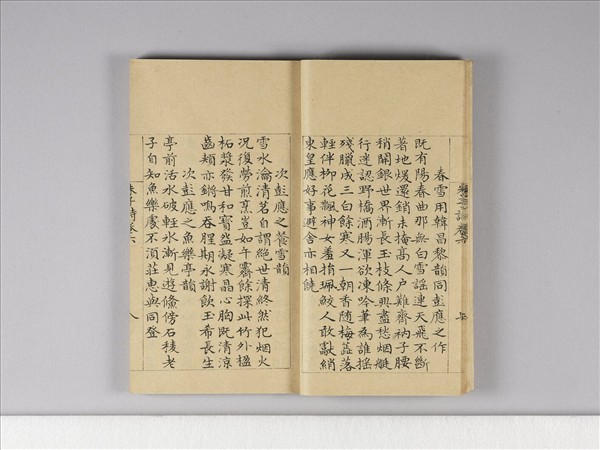 春雪用韓昌黎韻同彭應之作
既有陽春曲那無白雪謠連天飛不斷
著地煖還銷未掩高人戶難齊衲子腰
稍開銀世界漸長玉枝條興盡愁烟艇
行迷認野橋酒腸渾欲凍吟筆為誰搖
殘臘成三白餘寒又一朝香隨梅蘂落
輕伴柳花飄神女羞捐珮鮫人敢獻綃
東皇應好事避舍亦相饒
次彭應之雪韻
雪水瀹清茗自謂絕世清終然犯烟火
況復勞煎烹豈如午齋餘擇此竹外楹
柘漿發甘和寶盌凝寒晶心胸既清涼
齒頰亦鏘鳴吞腥期永謝飲玉希長生
次彭應之魚樂亭韻
亭前活水破輕冰漸見遊鯈傍石稜老
子自知魚樂處不須莊惠與同登
朱子詩卷六
八